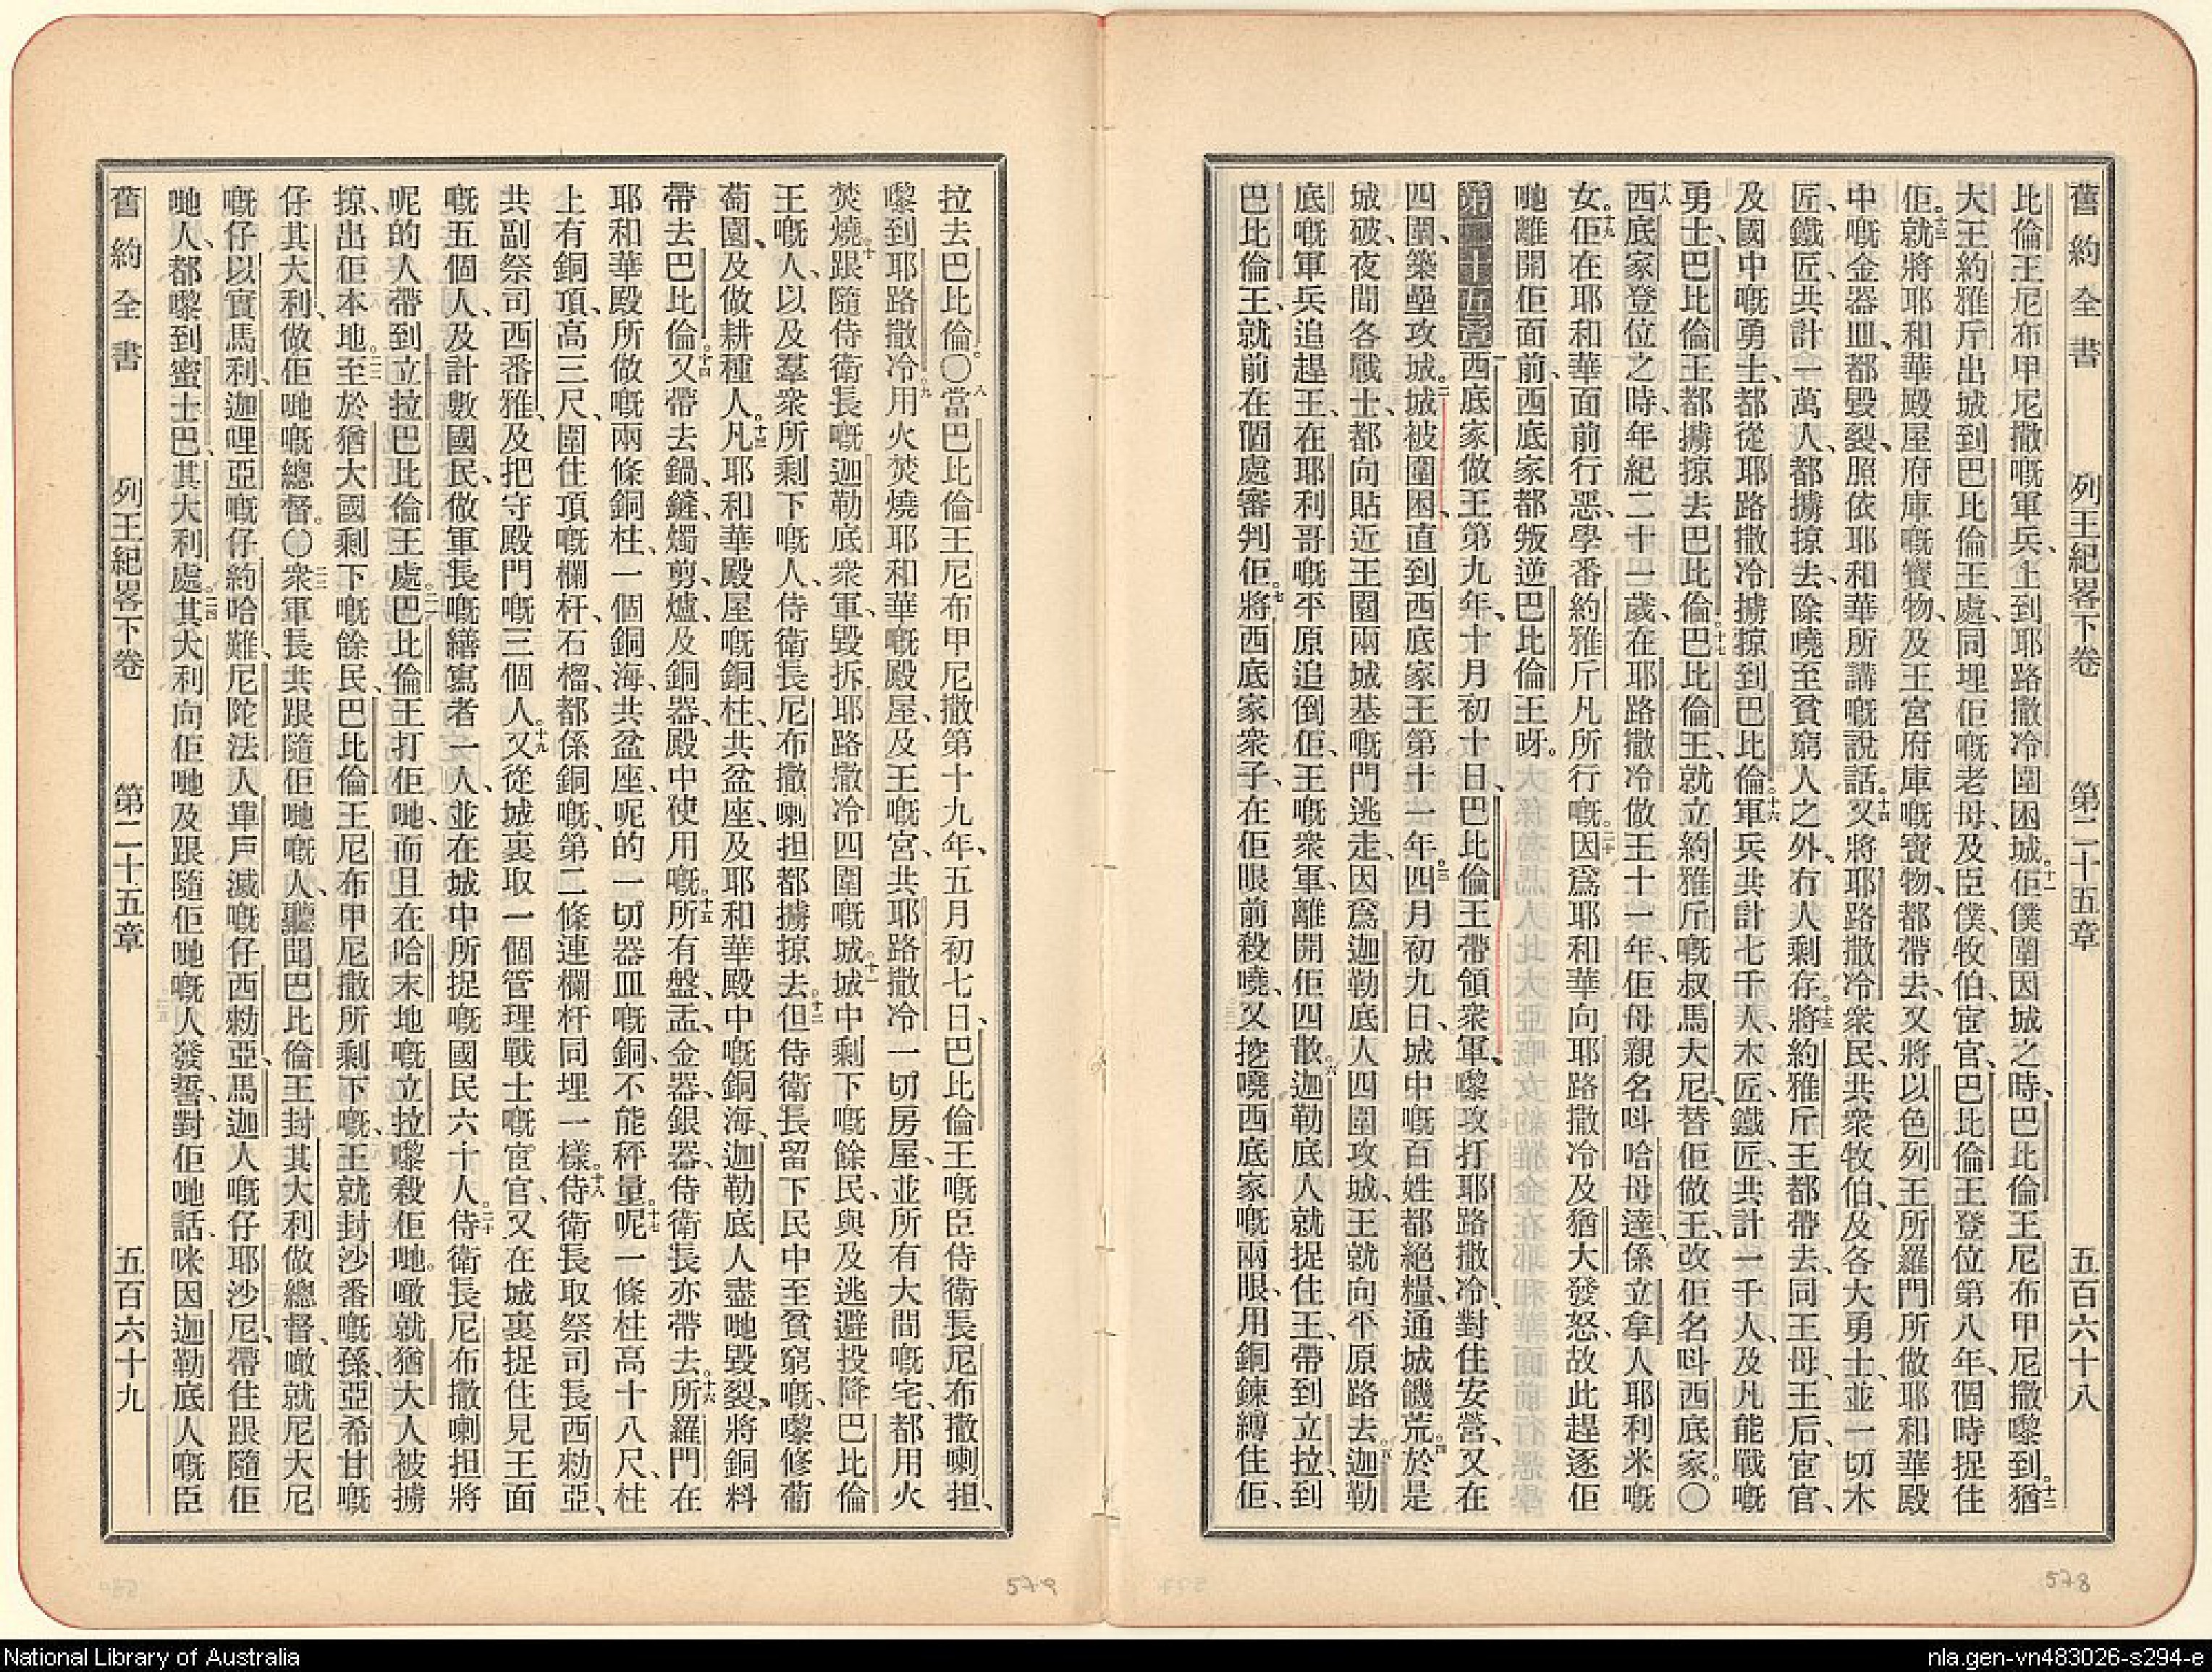 舊約全書　列王紀畧下卷　第二十五章　五百六十八
比倫王尼布甲尼撒嘅軍兵、上到耶路撒冷圍困城。十一佢僕圍困城之時、巴比倫王尼布甲尼撒嚟到。十二猶
大王約雅斤出城到巴比倫王處、同埋佢嘅老母、及臣僕、牧伯、宦官、巴比倫王登位第八年、個時捉住
佢。十三就將耶和華殿屋府庫嘅寶物、及王宮府庫嘅寶物、都帶去、又將以色列王所羅門所做耶和華殿
中嘅金器皿、都毀裂、照依耶和華所講嘅說話。十四又將耶路撒冷衆民、共衆牧伯、及各大勇士、並一切木
匠、鐵匠、共計一萬人、都擄掠去、除嘵至貧窮人之外、冇人剩存。十五將約雅斤王都帶去、同王母、王后、宦官、
及國中嘅勇士、都從耶路撒冷擄掠到巴比倫。十六軍兵共計七千人、木匠、鐵匠、共計一千人、及凡能戰嘅
勇士、巴比倫王都擄掠去巴比倫。十七巴比倫王、就立約雅斤嘅叔馬大尼、替佢做王、改佢名呌西底家。〇
十八西底家登位之時、年紀二十一歲、在耶路撒冷做王十一年、佢母親名呌哈母達、係立拿人耶利米嘅
女。十九佢在耶和華面前行惡、學番約雅斤凡所行嘅。二十因爲耶和華向耶路撒冷及猶大發怒、故此趕逐佢
哋離開佢面前、西底家都叛逆巴比倫王呀。
第二十五章　一西底家做王第九年、十月初十日、巴比倫王帶領衆軍、嚟攻打耶路撒冷、對住安營、又在
四圍、築壘攻城。二城被圍困、直到西底家王第十一年。三四月初九日、城中嘅百姓都絕糧、通城饑荒。四於是
城破、夜間各戰士、都向貼近王園兩城基嘅門逃走、因爲迦勒底人四圍攻城、王就向平原路去。五迦勒
底嘅軍兵追趕王、在耶利哥嘅平原追倒佢、王嘅衆軍、離開佢四散。六迦勒底人就捉住王、帶到立拉、到
巴比倫王、就前在個處審判佢。七將西底家衆子、在佢眼前殺嘵、又挖嘵西底家嘅兩眼、用銅鍊縛住佢、
拉去巴比倫。〇八當巴比倫王尼布甲尼撒第十九年、五月初七日、巴比倫王嘅臣侍衛長尼布撒喇担、
嚟到耶路撒冷。九用火焚燒耶和華嘅殿屋、及王嘅宮、共耶路撒冷一切房屋、並所有大間嘅宅、都用火
焚燒。十跟隨侍衛長嘅迦勒底衆軍、毀拆耶路撒冷四圍嘅城。十一城中剩下嘅餘民、與及逃避投降巴比倫
王嘅人、以及羣衆所剩下嘅人、侍衛長尼布撒喇担都擄掠去。十二但侍衛長留下民中至貧窮嘅、嚟修葡
萄園、及做耕種人。十三凡耶和華殿屋嘅銅柱、共盆座、及耶和華殿中嘅銅海、迦勒底人盡哋毀裂、將銅料
帶去巴比倫。十四又帶去鍋、鏟、燭剪、爐、及銅器、殿中使用嘅。十五所有盤、盂、金器、銀器、侍衛長亦帶去。十六所羅門在
耶和華殿所做嘅兩條銅柱、一個銅海、共盆座、呢的一切器皿嘅銅、不能秤量。十七呢一條柱高十八尺、柱
上有銅頂、高三尺、圍住頂嘅欄杆、石榴、都係銅嘅、第二條連欄杆同埋一樣。十八侍衛長取祭司長西勑亞、
共副祭司西番雅、及把守殿門嘅三個人。十九又從城裏取一個管理戰士嘅宦官、又在城裏捉住見王面
嘅五個人、及計數國民、做軍長嘅繕寫者一人、並在城中所捉嘅國民六十人。二十侍衛長尼布撒喇担將
呢的人帶到立拉巴比倫王處。二一巴比倫王打佢哋、而且在哈末地嘅立拉嚟殺佢哋。噉就猶大人被擄
掠、出佢本地。二二至於猶大國剩下嘅餘民、巴比倫王尼布甲尼撒所剩下嘅、王就封沙番嘅孫、亞希甘嘅
仔其大利、做佢哋嘅總督。〇二三衆軍長共跟隨佢哋嘅人、聽聞巴比倫王封其大利做總督、噉就尼大尼
嘅仔以實馬利、迦哩亞嘅仔約哈難、尼陀法人單戶滅嘅仔西勑亞、馬迦人嘅仔耶沙尼、帶住跟隨佢
哋人、都嚟到蜜士巴、其大利處。二四其大利向佢哋及跟隨佢哋嘅人發誓、對佢哋話、咪因迦勒底人嘅臣
舊約全書　列王紀畧下卷　第二十五章　五百六十九
578
579
National Library of Australia
nla.gen-vn483026-s294-e